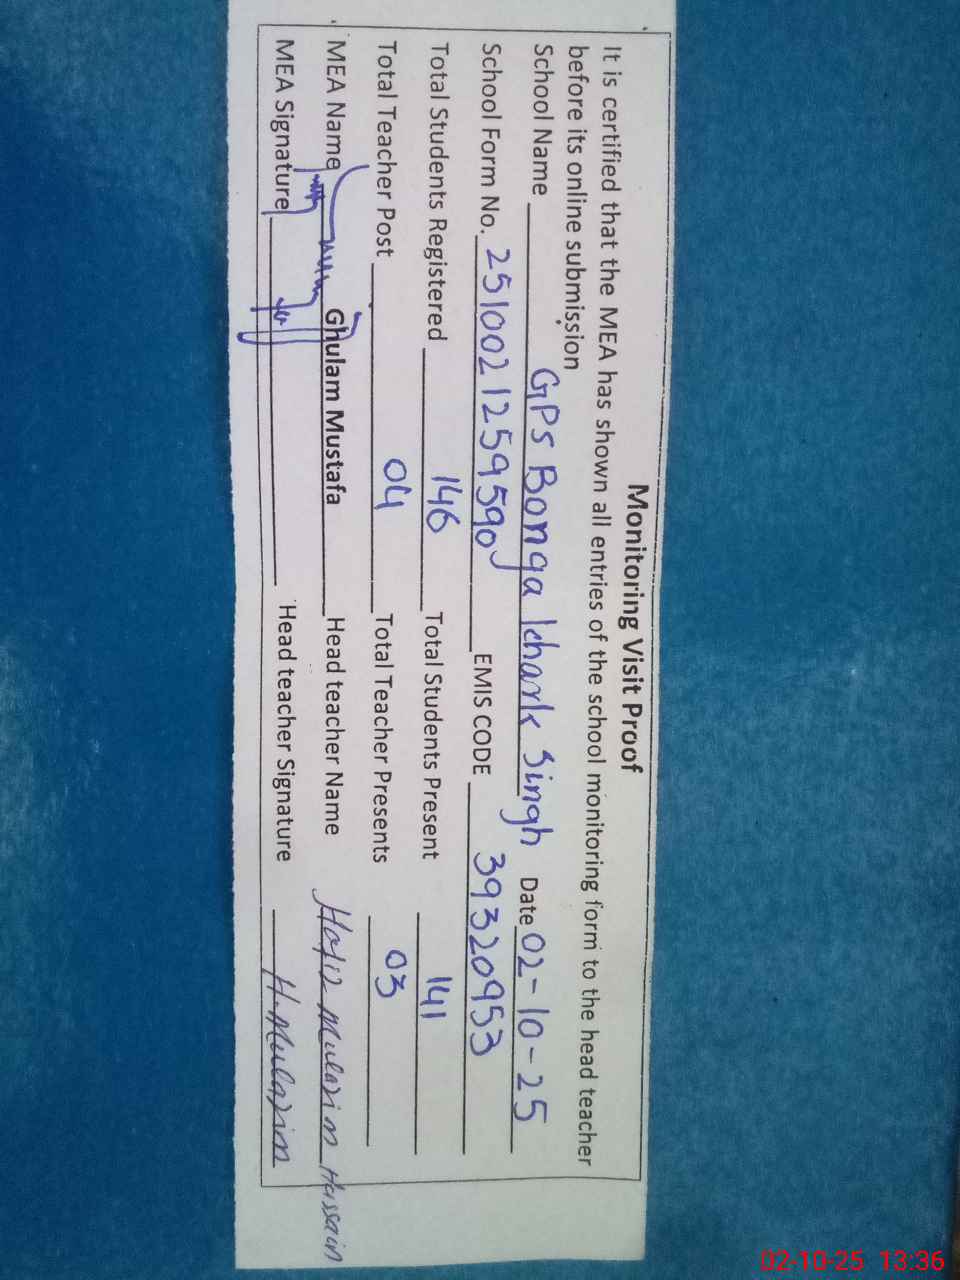 Monitoring Visit Proof
It is certified that the MEA has shown all entries of the school monitoring form to the head teacher
before its online submission
School Name GPS Bonga Khark Singh Date 02-10-25
School Form No. 2510021259590 EMIS CODE 39320953
Total Students Registered 146 Total Students Present 141
Total Teacher Post 04 Total Teacher Presents 03
MEA Name Ghulam Mustafa Head teacher Name Hafiz Mulazim Hussain
MEA Signature Head teacher Signature H.Mulazim
02-10-25 13:36